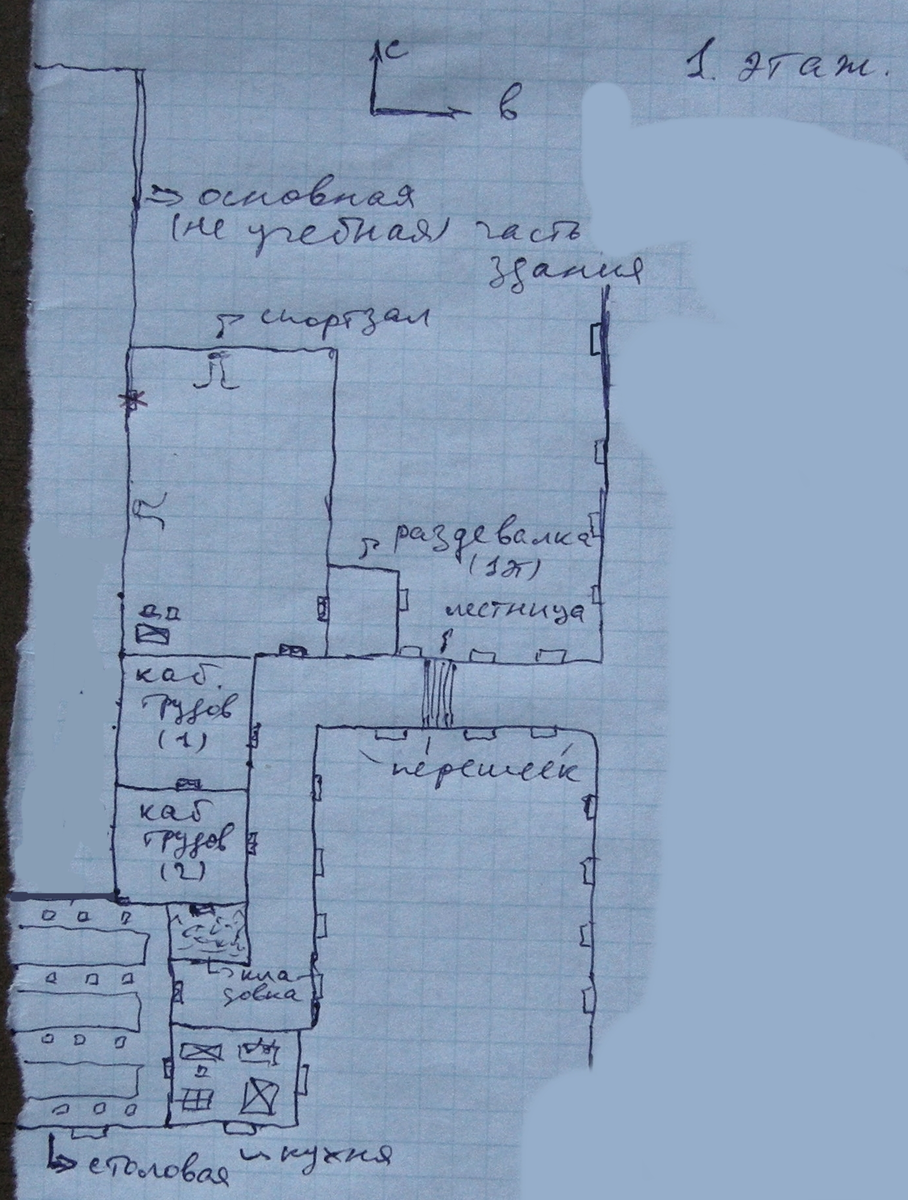 с
1. этаж.
в
основная
(не учебная) часть
здания
спортзал
раздевалка
(1э)
лестница
каб.
трудов
(1)
перешеек
каб
трудов
(2)
кла-
довка
кухня
столовая